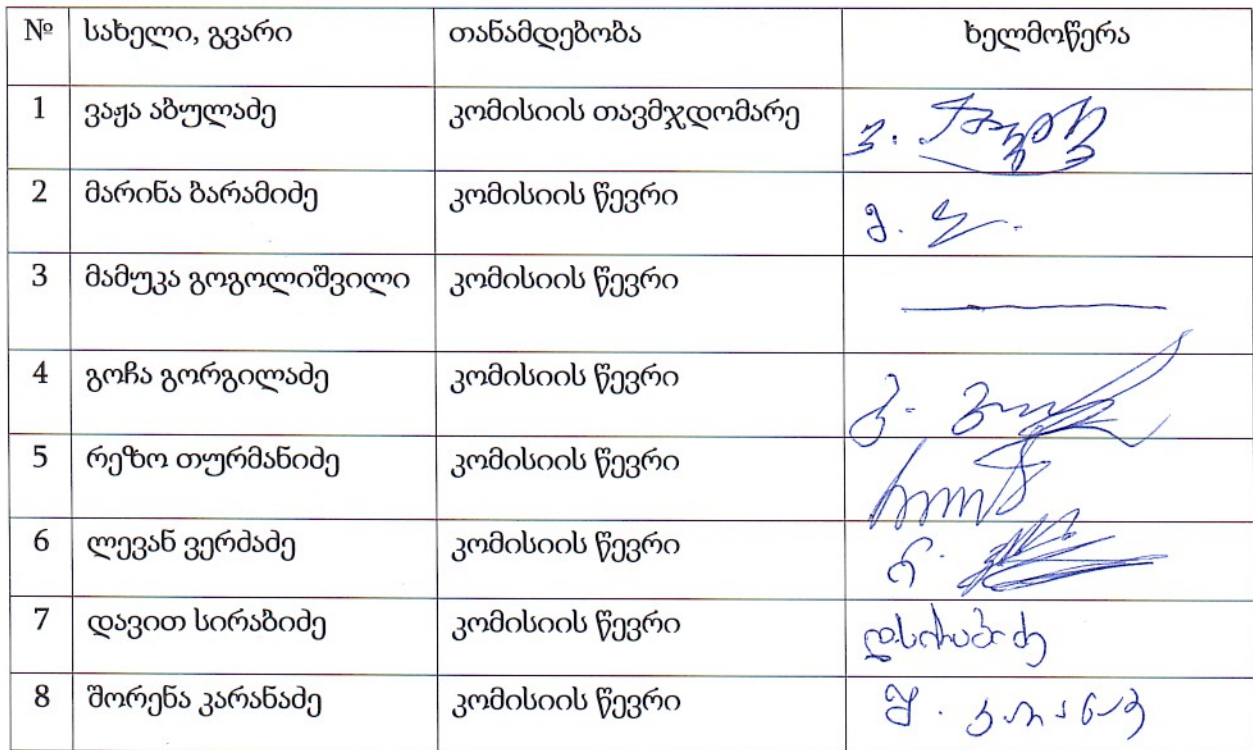 № სახელი, გვარი თანამდებობა ხელმოწერა
1 ვაჟა აბულაძე კომისიის თავმჯდომარე
2 მარინა ბარამიძე კომისიის წევრი
3 მამუკა გოგოლიშვილი კომისიის წევრი
4 გოჩა გორგილაძე კომისიის წევრი
5 რეზო თურმანიძე კომისიის წევრი
6 ლევან ვერძაძე კომისიის წევრი
7 დავით სირაბიძე კომისიის წევრი დ.სირაბიძე
8 შორენა კარანაძე კომისიის წევრი შ. კარანაძ